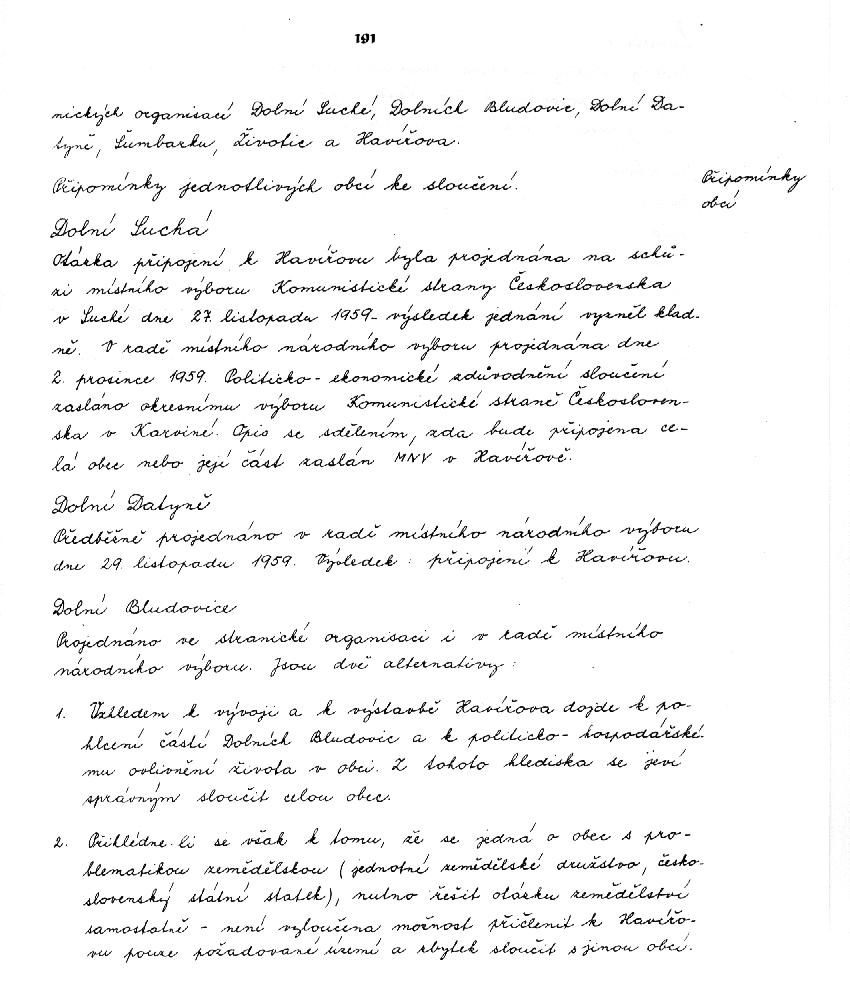 191
nických organisací Dolní Suché, Dolních Bludovic, Dolní Da-
tyně, Šumbarku, Životic a Havířova.
Připomínky jednotlivých obcí ke sloučení.
Připomínky
obcí
Dolní Suchá
Otázka připojení k Havířovu byla projednána na schů-
zi místního výboru Komunistické strany Československa
v Suché dne 27. listopadu 1959 - výsledek jednání vyzněl klad-
ně. V radě místního národního výboru projednána dne
2. prosince 1959. Politicko - ekonomické zdůvodnění sloučení
zasláno okresnímu výboru Komunistické straně Českosloven-
ska v Karviné. Opis se sdělením, zda bude připojena ce-
lá obec nebo její část zaslán MNV v Havířově.
Dolní Datyně
Předběžně projednáno v radě místního národního výboru
dne 29. listopadu 1959. Výsledek : připojení k Havířovu.
Dolní Bludovice
Projednáno ve stranické organisaci i v radě místního
národního výboru. Jsou dvě alternativy :
1. Vzhledem k vývoji a k výstavbě Havířova dojde k po-
hlcení částí Dolních Bludovic a k politicko - hospodářské-
mu ovlivnění života v obci. Z tohoto hlediska se jeví
správným sloučit celou obec.
2. Přihlédne-li se však k tomu, že se jedná o obec s pro-
blematikou zemědělskou ( jednotné zemědělské družstvo, česko-
slovenský státní statek ), nutno řešit otázku zemědělství
samostatně - není vyloučena možnost přičlenit k Havířo-
vu pouze požadované území a zbytek sloučit s jinou obcí.